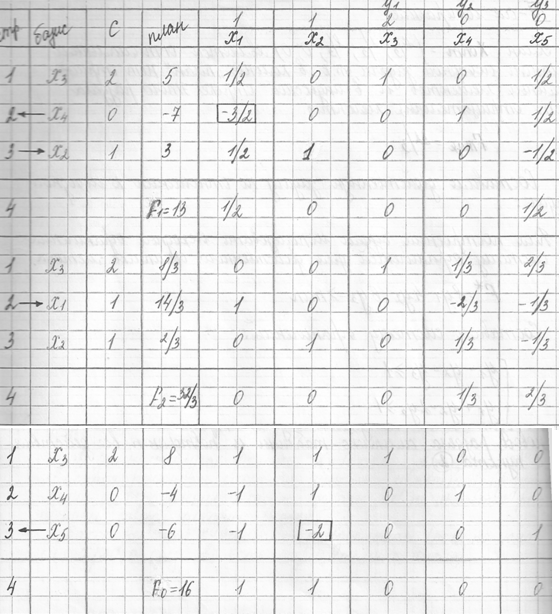 y1 y2 y3
1 1 2 0 0
стр базис C план x1 x2 x3 x4 x5
1 x3 2 5 1/2 0 1 0 1/2
2 ← x4 0 -7 -3/2 0 0 1 1/2
3 → x2 1 3 1/2 1 0 0 -1/2
4 F1=13 1/2 0 0 0 1/2
1 x3 2 8/3 0 0 1 1/3 2/3
2 → x1 1 14/3 1 0 0 -2/3 -1/3
3 x2 1 2/3 0 1 0 1/3 -1/3
4 F2=32/3 0 0 0 1/3 2/3
1 x3 2 8 1 1 1 0 0
2 x4 0 -4 -1 1 0 1 0
3 ← x5 0 -6 -1 -2 0 0 1
4 F0=16 1 1 0 0 0